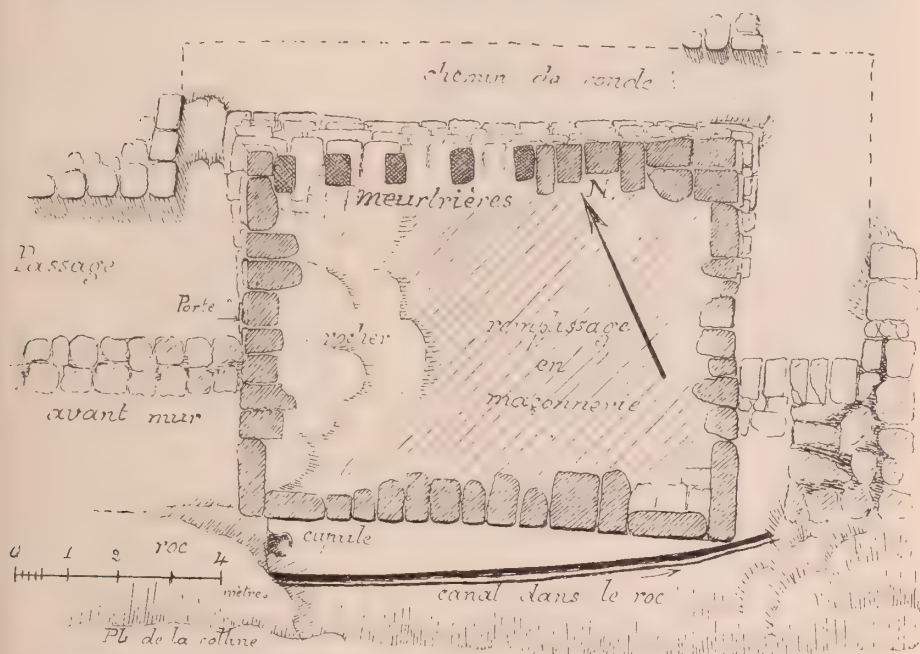 chemin de ronde
meurtrières
N.
Passage
Porte
rocher
remplissage
en
maçonnerie
avant mur
cupule
0 1 2 4
roc
mètres
canal dans le roc
Pt. de la colline